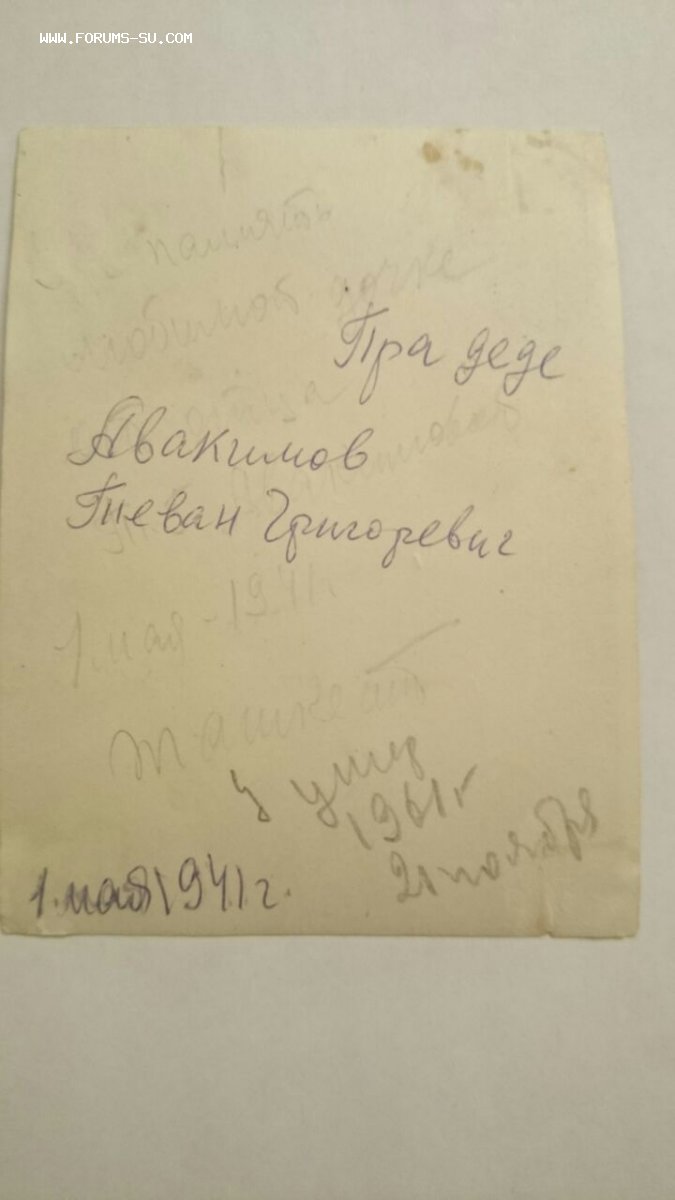 WWW.FORUMS-SU.COM
память
любимой дочке
Пра деде
отца
Авакимов
Гневан Григоревич
1 мая - 1941г.
Ташкент
1961г
21 ноября
1. мая 1941г.